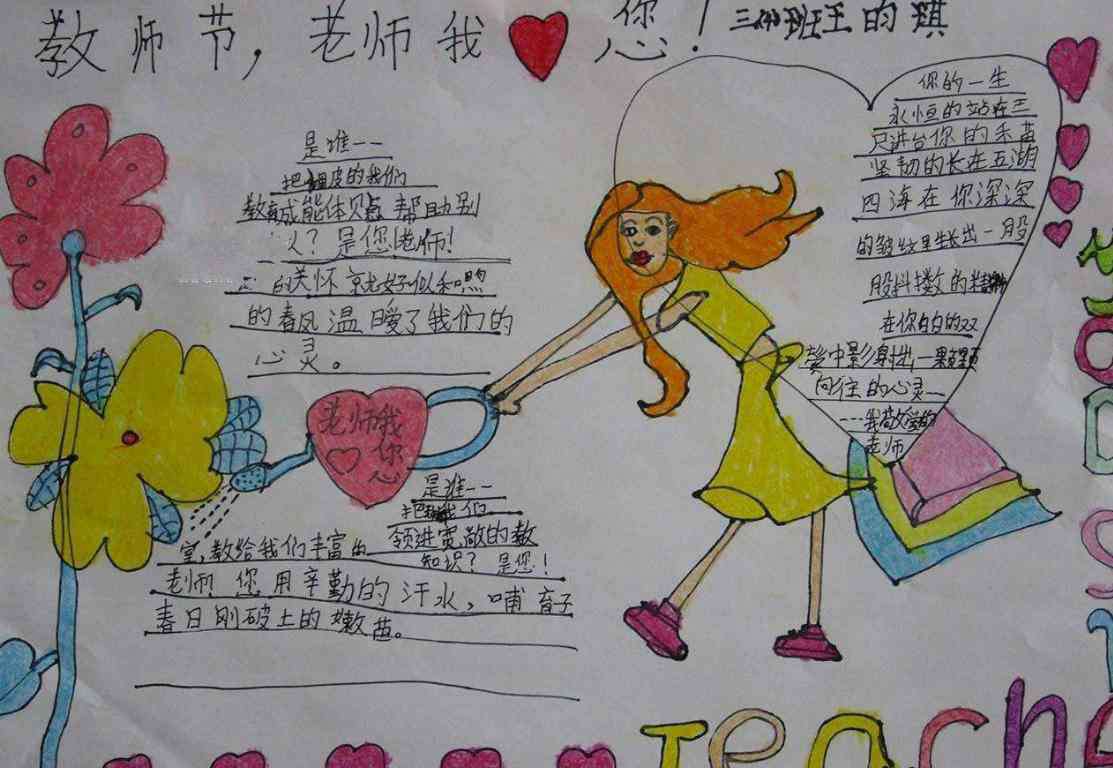 教师节，老师我您！
三班王的琪
是唯一一
把调皮的我们
教育成能体贴帮助别
人？是您！老师！
的关怀就好似和煦
的春风温暖了我们的
心灵。
老师我
你
心
是谁一一
把我们
室，教给我们丰富的领进宽敞的教
知识？是您！
老师！您用辛勤的汗水，哺育子
春日刚破土的嫩苗。
你的一生
永恒的站在三
尺讲台你的禾苗
坚韧的长在五湖
四海在你深深
的皱纹里生长出一股
股抖擞的精神
在你的的双
鬓中影射出一颗颗
向往的心灵一
---我敬爱的
老师
Teache